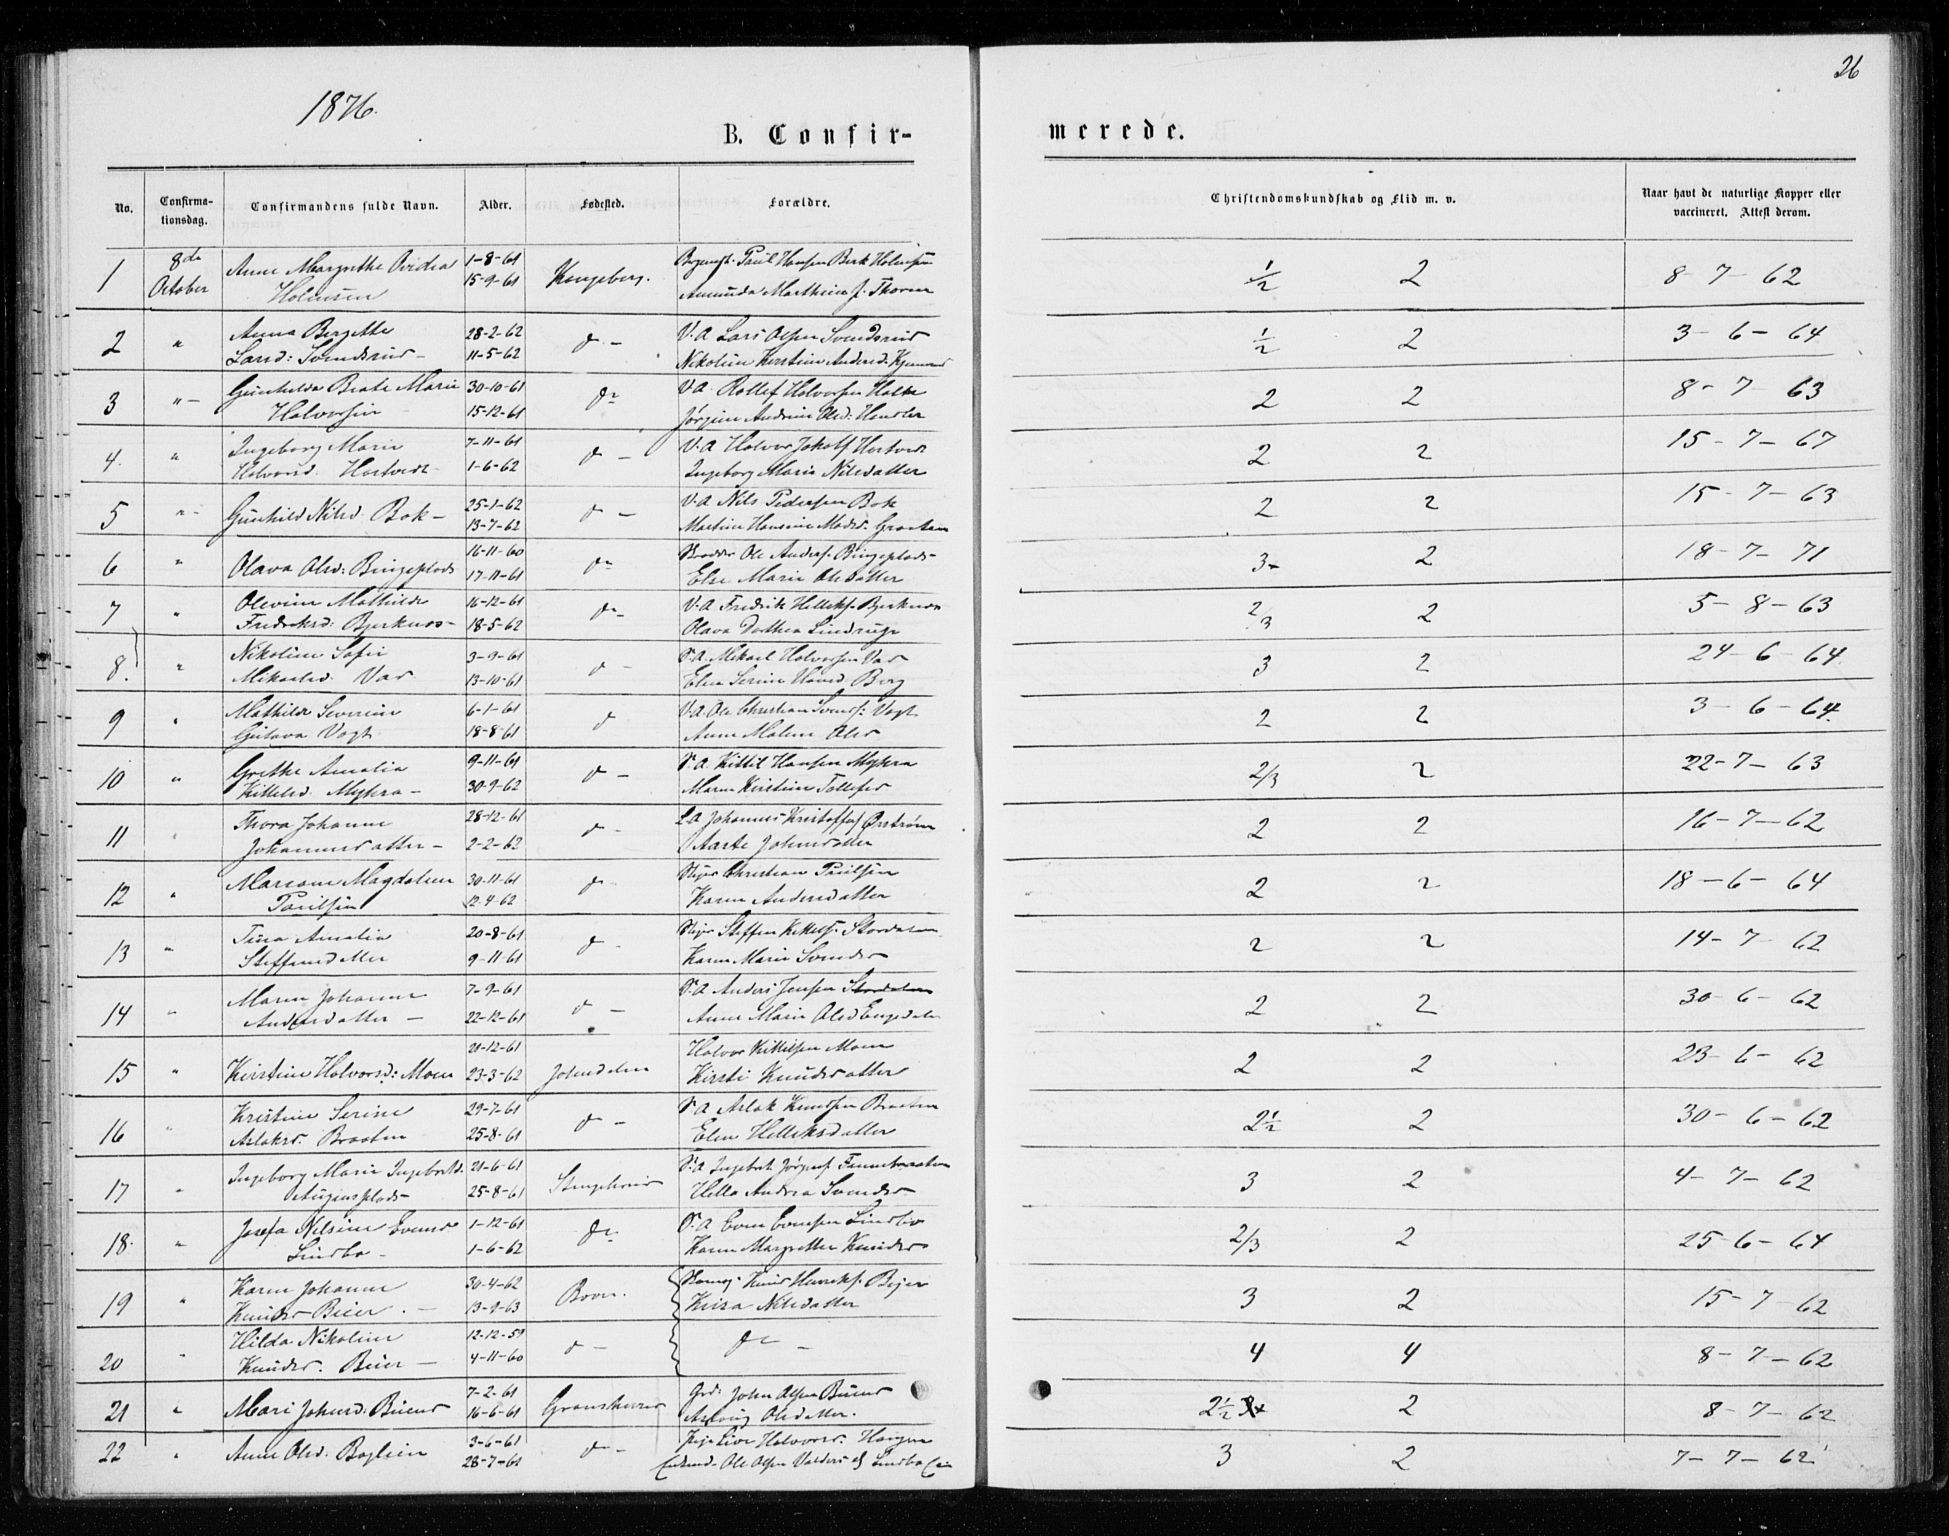 1876.
26
B. Confir-
merede.
No.
Confirma-
tionsdag.
Confirmandens fulde Navn.
Alder.
Fødested.
Forældre.
Christendomskundskab og Flid m. v.
Naar havt de naturlige Kopper eller
vaccineret. Attest derom.
1 8de Anne Margrethe Ovidia 1-8-61 Paul Hansen Berk Holmsen
October Holmsen 15-9-61 Kongsberg. Amunda Marthine f. Thorne
1/2 2 8-7-62
2 " Anna Bergitte 28-2-62 do - V.A Lars Olsen Svendsrud
Larsd: Svendsrud - 11-5-62 Nikoline Kirstine Andersd.
1/2 2 3-6-64
3 " - Gunhilda Beate Marie 30-10-61 do V.A Rollef Halvorsen
Halvorsen 15-12-61 Jørgine Andrine Olsd:
2 2 8-7-63
4. " Ingeborg Marie 7-11-61 do - V.A Halvor Jakobs Hostvedt
Halvorsd. Hostvedt 1-6-62 Ingeborg Marie Nilsdatter
2 2 15-7-67
5 " - Gunhild Nilsd. Bok - 25-1-62 do - V.A Nils Pedersen Bok
13-7-62 Martine Hansine Madsd.
2 2 15-7-63
6 " Olava Olsd: Bingeplads 16-11-60 do Ole Anders. Bingeplads
17-11-61 Else Marie Olsdatter
3- 2 18-7-71
7 " Olevine Mathilde 16-12-61 do - V.A Fredrik Helleks. Bjerknes
Fredriksd: Bjerknes - 18-5-62 Olava Dorthea
2/3 2 5-8-63
8. " Nikoline Sofie 3-9-61 do - S.A. Mikael Halvorsen Var
Mikaelsd. Var 13-10-61 Elen Serine Hansd Berg
3 2 24-6-64
9 " Mathilde Severine 6-1-61 do V.A. Ole Christian Svends: Vogt
Gustava Vogt 18-8-61 Anne Malene Olsd
2 2 3-6-64.
10 " Grethe Amalia 9-11-61 do - S.A. Kittil Hansen Myhra
Kittilsd. Myhra - 30-9-62 Maren Kirstine Tollefsd
2/3 2 22-7-63
11 " Thora Johanne 28-12-61 do - L.A Johannes Kristoffers Ørstrøm
Johannesdatter - 2-2-62 Aaste Johnsdatter
2 2 16-7-62
12 " Mariane Magdalene 30-11-61 do Christian Paulsen
Paulsen 12-4-62 Karen Andersdatter
2 2 18-6-64
13 " Tina Amalia 20-8-61 do - Steffen Kittils. Stordalen
Steffensdatter 9-11-61 Karen Marie Svendsd
2 2 14-7-62
14 " Maren Johanne 7-9-61 do - S.A Anders Jensen Stordalen
Andersdatter - 22-12-61 Anne Marie Olsd Engedalen
2 2 30-6-62
15 " Kirstine Halvorsd: Moen 21-12-61 Jonsdalen Halvor Kittilsen Moen
23-3-62 Kirsti Knudsdatter
2 2 23-6-62
16 " Kristine Serine 29-7-61 do - S.A Aslak Knudsen Braaten
Aslaksd. Braaten 25-8-61 Elen Helleksdatter
2½ 2 30-6-62
17 " Ingeborg Marie Ingebretsd. 21-6-61 S.A Ingebret Jørgens.
25-8-61 Helle Andrea Svendsd
3 2 4-7-62
18. " Josefa Nilsine Evensd 1-12-61 do S.A Even Evensen Lindbo
Lindbo - 1-6-62 Karen Margrethe Knudsd
2/3 2 25-6-64
19 " Karen Johanne 30-4-62 Knud Henriks. Bejer
Knudsd Beier. - 13-9-63 Nilsdatter
3 2 15-7-62
20 " Hilda Nikoline 12-12-59 do - do -
Knudsd. Beier - 4-11-60
4 4 8-7-62
21 " Mari Johnsd. Buind 7-2-61 Gransherred Grd: John Olsen Buind
16-6-61 Aslaug Olsdatter.
2½ 2 8-7-62
22 " Anne Olsd. Boglien 3-6-61 do - Pige Live Halvorsd. Haugen
28-7-61 Ole Olsen
3 2 7-7-62